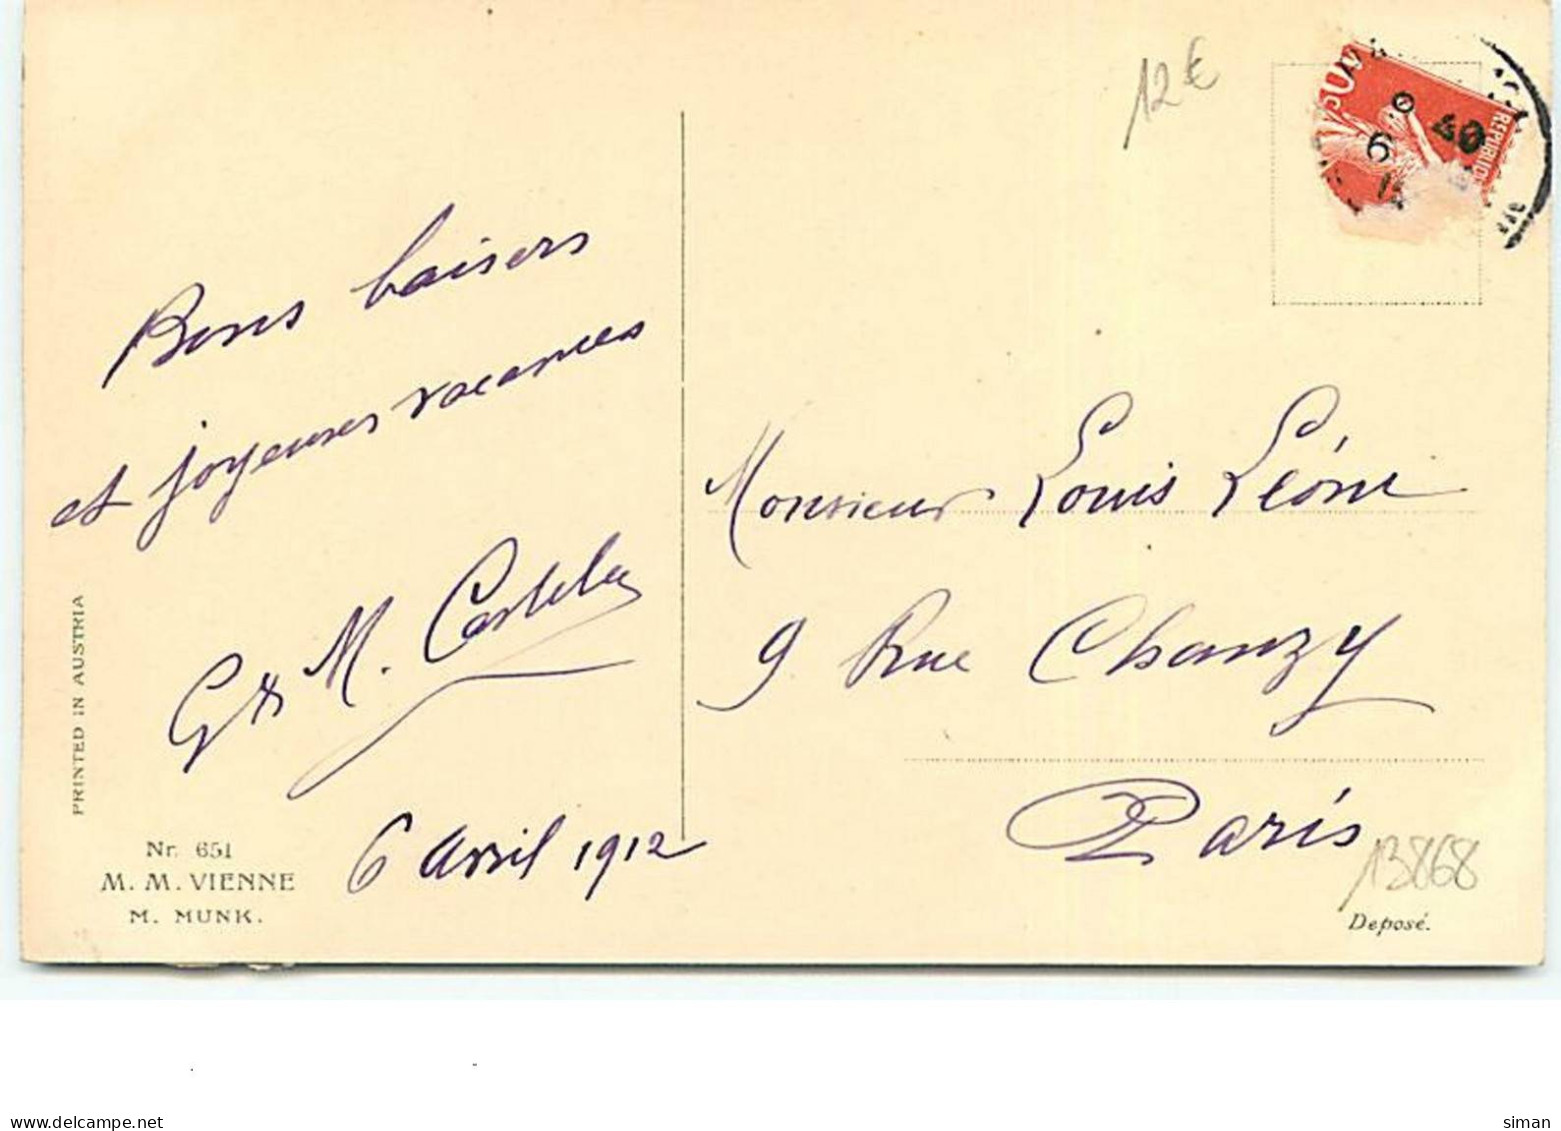 12€
50
REPUBLIQUE
6
40
Bons baisers
et joyeuses vacances
G et M. Castela
6 avril 1912
Monsieur Louis Léoni
9 Rue Chanzy
Paris
13868
Deposé.
PRINTED IN AUSTRIA
Nr. 651
M. M. VIENNE
M. MUNK.
www.delcampe.net
siman